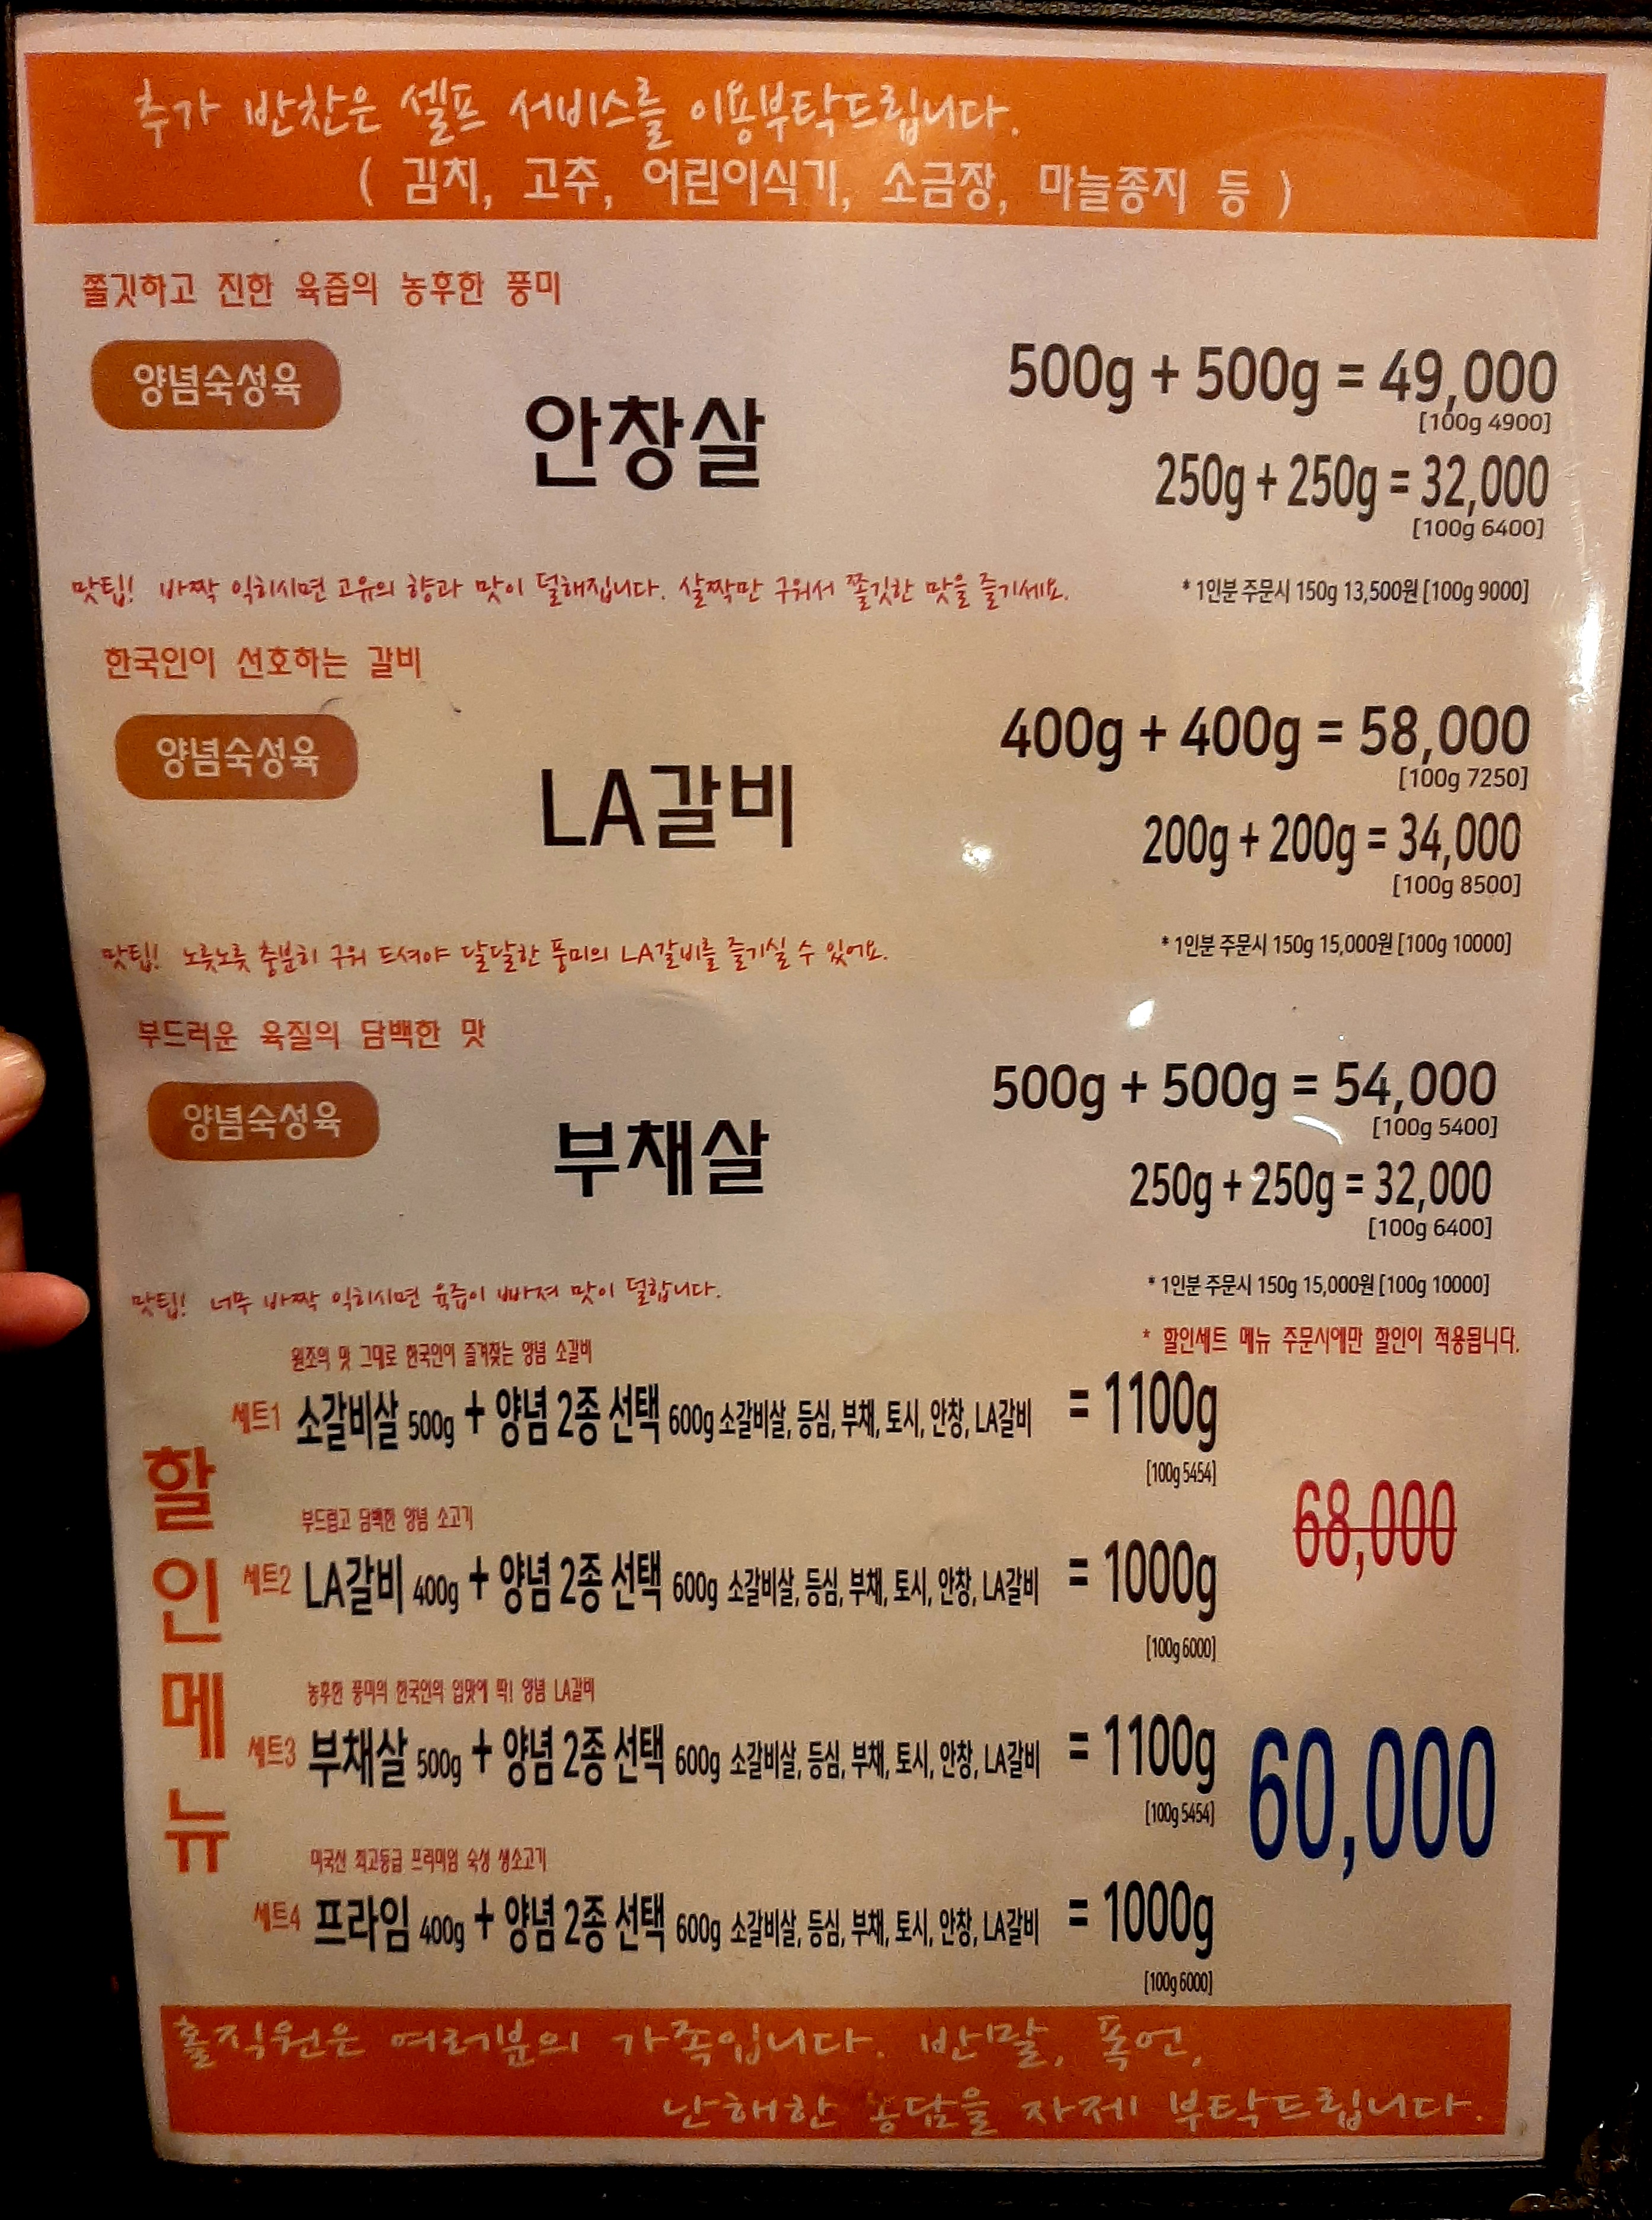 추가 반찬은 셀프 서비스를 이용부탁드립니다.
( 김치, 고추, 어린이식기, 소금장, 마늘종지 등 )
쫄깃하고 진한 육즙의 농후한 풍미
양념숙성육
안창살
500g + 500g = 49,000
[100g 4900]
250g + 250g = 32,000
[100g 6400]
맛팁! 바짝 익히시면 고유의 향과 맛이 덜해집니다. 살짝만 구워서 쫄깃한 맛을 즐기세요.
* 1인분 주문시 150g 13,500원 [100g 9000]
한국인이 선호하는 갈비
양념숙성육
LA갈비
400g + 400g = 58,000
[100g 7250]
200g + 200g = 34,000
[100g 8500]
맛팁! 노릇노릇 충분히 구워 드셔야 달달한 풍미의 LA갈비를 즐기실 수 있어요.
* 1인분 주문시 150g 15,000원 [100g 10000]
부드러운 육질의 담백한 맛
양념숙성육
부채살
500g + 500g = 54,000
[100g 5400]
250g + 250g = 32,000
[100g 6400]
맛팁! 너무 바짝 익히시면 육즙이 빠져 맛이 덜합니다.
* 1인분 주문시 150g 15,000원 [100g 10000]
* 할인세트 메뉴 주문시에만 할인이 적용됩니다.
할인메뉴
원조의 맛 그대로 한국인이 즐겨찾는 양념 소갈비
세트1 소갈비살 500g + 양념 2종 선택 600g 소갈비살, 등심, 부채, 토시, 안창, LA갈비 = 1100g
[100g 5454]
부드럽고 담백한 양념 소고기
세트2 LA갈비 400g + 양념 2종 선택 600g 소갈비살, 등심, 부채, 토시, 안창, LA갈비 = 1000g
[100g 6000]
68,000
농후한 풍미의 한국인의 입맛에 딱! 양념 LA갈비
세트3 부채살 500g + 양념 2종 선택 600g 소갈비살, 등심, 부채, 토시, 안창, LA갈비 = 1100g
[100g 5454]
60,000
미국산 최고등급 프리미엄 숙성 생소고기
세트4 프라임 400g + 양념 2종 선택 600g 소갈비살, 등심, 부채, 토시, 안창, LA갈비 = 1000g
[100g 6000]
홀직원은 여러분의 가족입니다. 반말, 폭언,
난해한 농담을 자제 부탁드립니다.